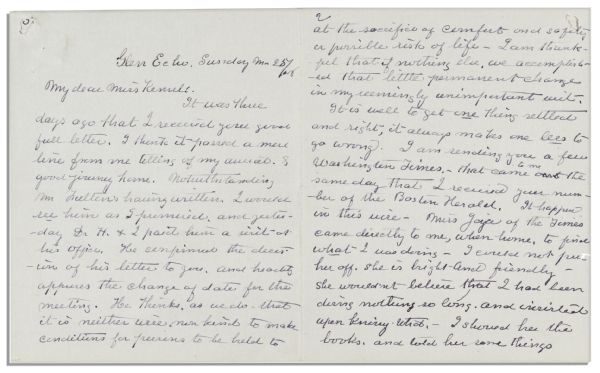 Glen Echo, Tuesday
My dear Miss Kennel.
It was three
days ago that I received your good
full letter. I think it passed a mere
line from me telling of my arrival &
good journey home. Notwithstanding
Mr having written, I would
see him as I promised, and yester-
day Dr. H. & I paid him a visit at
his office. He confirmed the decis-
ion of his letter to you, and heartily
approves the change of dates for the
meeting. He thinks, as we do that
it is neither wise, nor kind to make
conditions for persons to be held to
2
at the sacrifice of comfort and safety
or possible risk of life - I am thank-
ful that if nothing else, we accomplish-
ed that little permanent change
in my seemingly unimportant visit.
It is well to get one thing settled
and right; it always makes one less to
go wrong. I am sending you a few
Washington Times. - that came to me the
same day that I received your num-
ber of the Boston Herald. It happen
in this wise - Miss of the Times
came directly to me, when home, to find
what I was doing - I could not put
her off. She is bright and friendly -
she wouldn't believe that I had been
doing nothing so long. and insisted
upon knowing what. - I showed her the
books. and told her some things